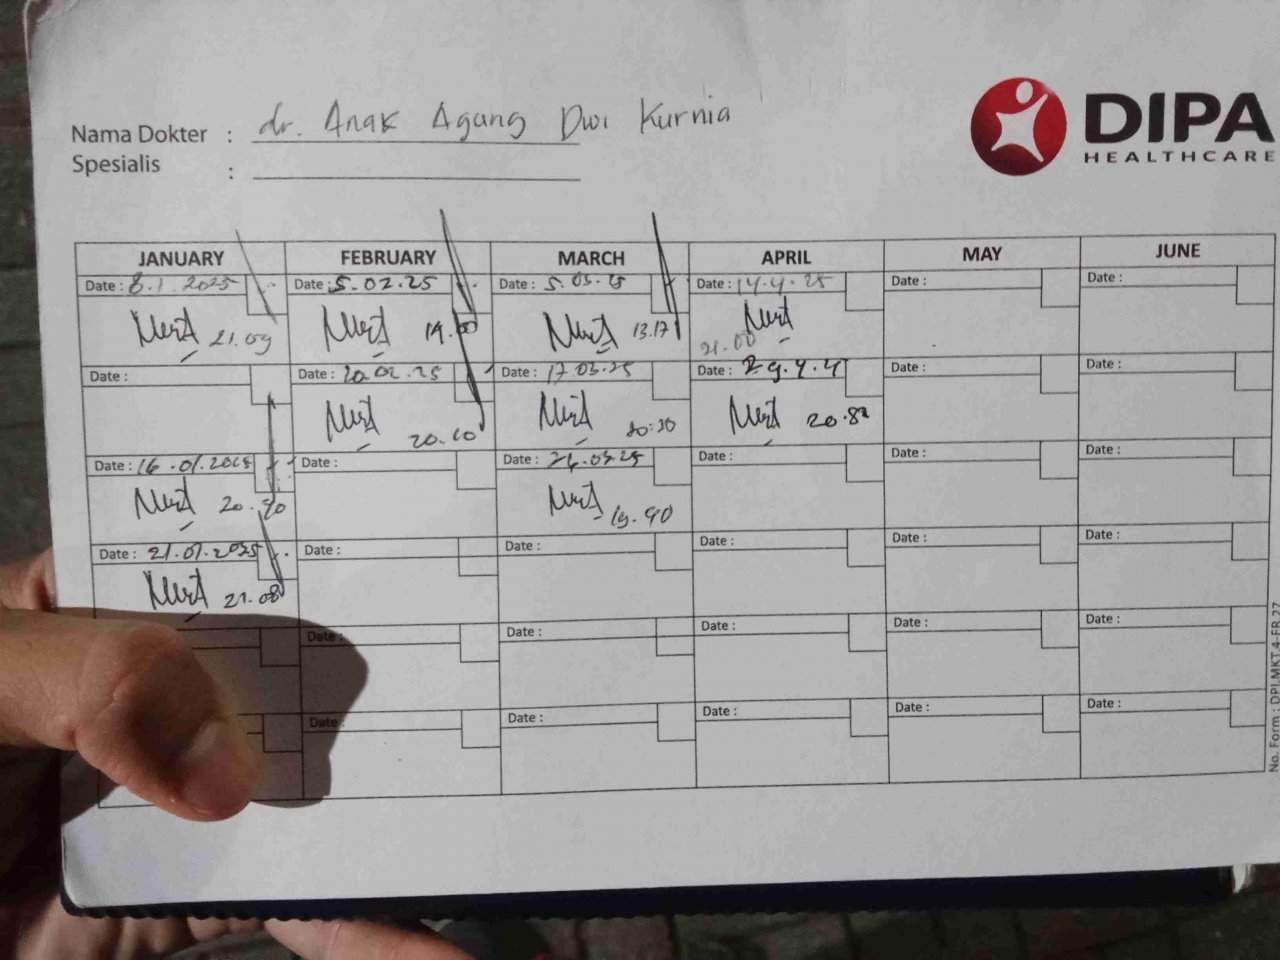 Nama Dokter : dr. Anak Agung Dwi Kurnia
Spesialis :
DIPA
HEALTHCARE
JANUARY FEBRUARY MARCH APRIL MAY JUNE
Date : 8.1.2025 Date : 5.02.25 Date : 5.03.25 Date : 14.4.25 Date : Date :
21.09 13.17 21.00
Date : Date : 20.02.25 Date : 17.03.25 Date : Date : Date :
20.10 20:30
Date : 16.01.2025 Date : Date : 26.03.25 Date : Date : Date :
20.40 19.40
Date : 21.01.2025 Date : Date : Date : Date : Date :
21.08
Date : Date : Date : Date : Date :
Date : Date : Date : Date : Date :
No. Form : DPI.MKT.4-FR.27